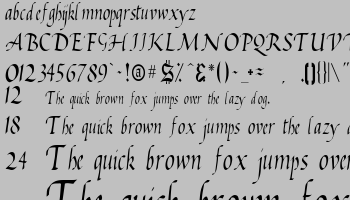 abcdefghijklmnopqrstuvwxyz
ABCDEFGHIJKLMNOPQRSTUVW
0123456789`~!@#$%^&*()-_+= , .[]{}|\"
12 The quick brown fox jumps over the lazy dog.
18 The quick brown fox jumps over the lazy d
24 The quick brown fox jumps over
The quick brown fox